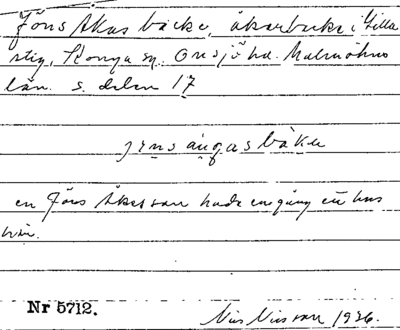 Jöns Åkas bäcke, åkerbacke i Lilla
stig, Konga sn, Onsjö hd. Malmöhus
län. s. delen 17
jens ångas bäke
en Jöns Åkesson hade engång ett hus
här.
Nr 5712.
Nils Nilsson 1926.